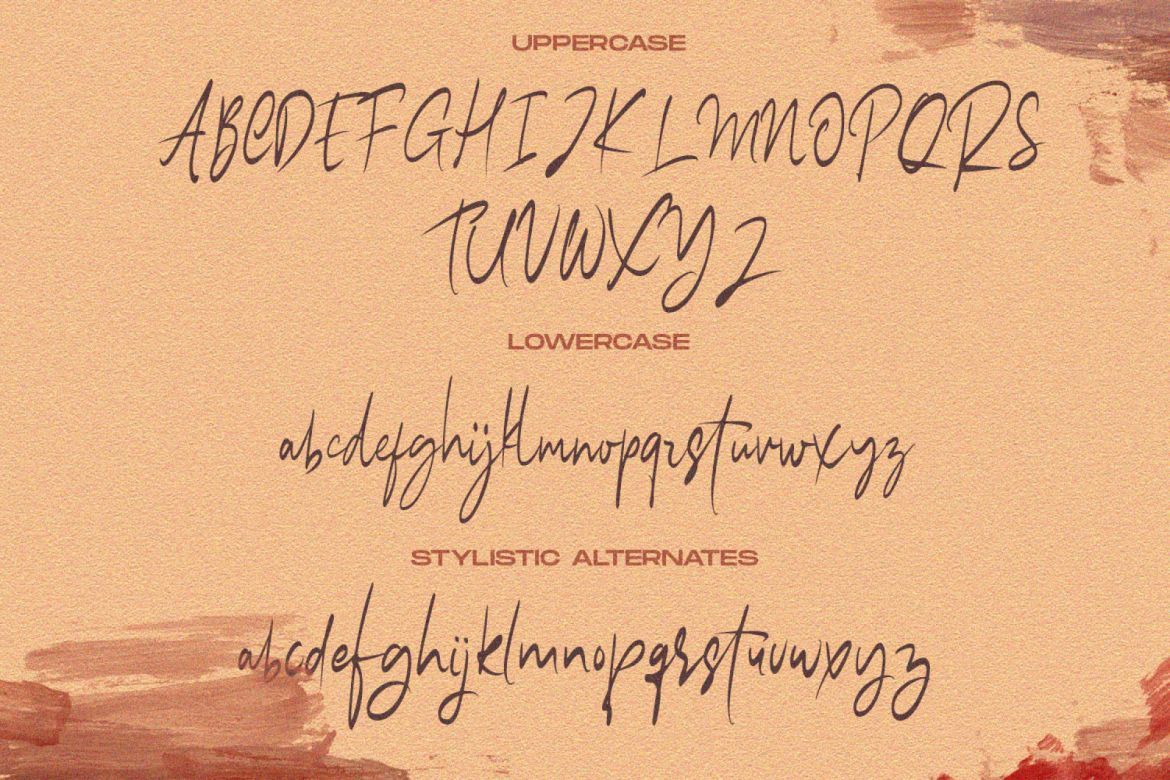 UPPERCASE
ABCDEFGHIJKLMNOPQRS
TUVWXYZ
LOWERCASE
abcdefghijklmnopqrstuvwxyz
STYLISTIC ALTERNATES
abcdefghijklmnopqrstuvwxyz